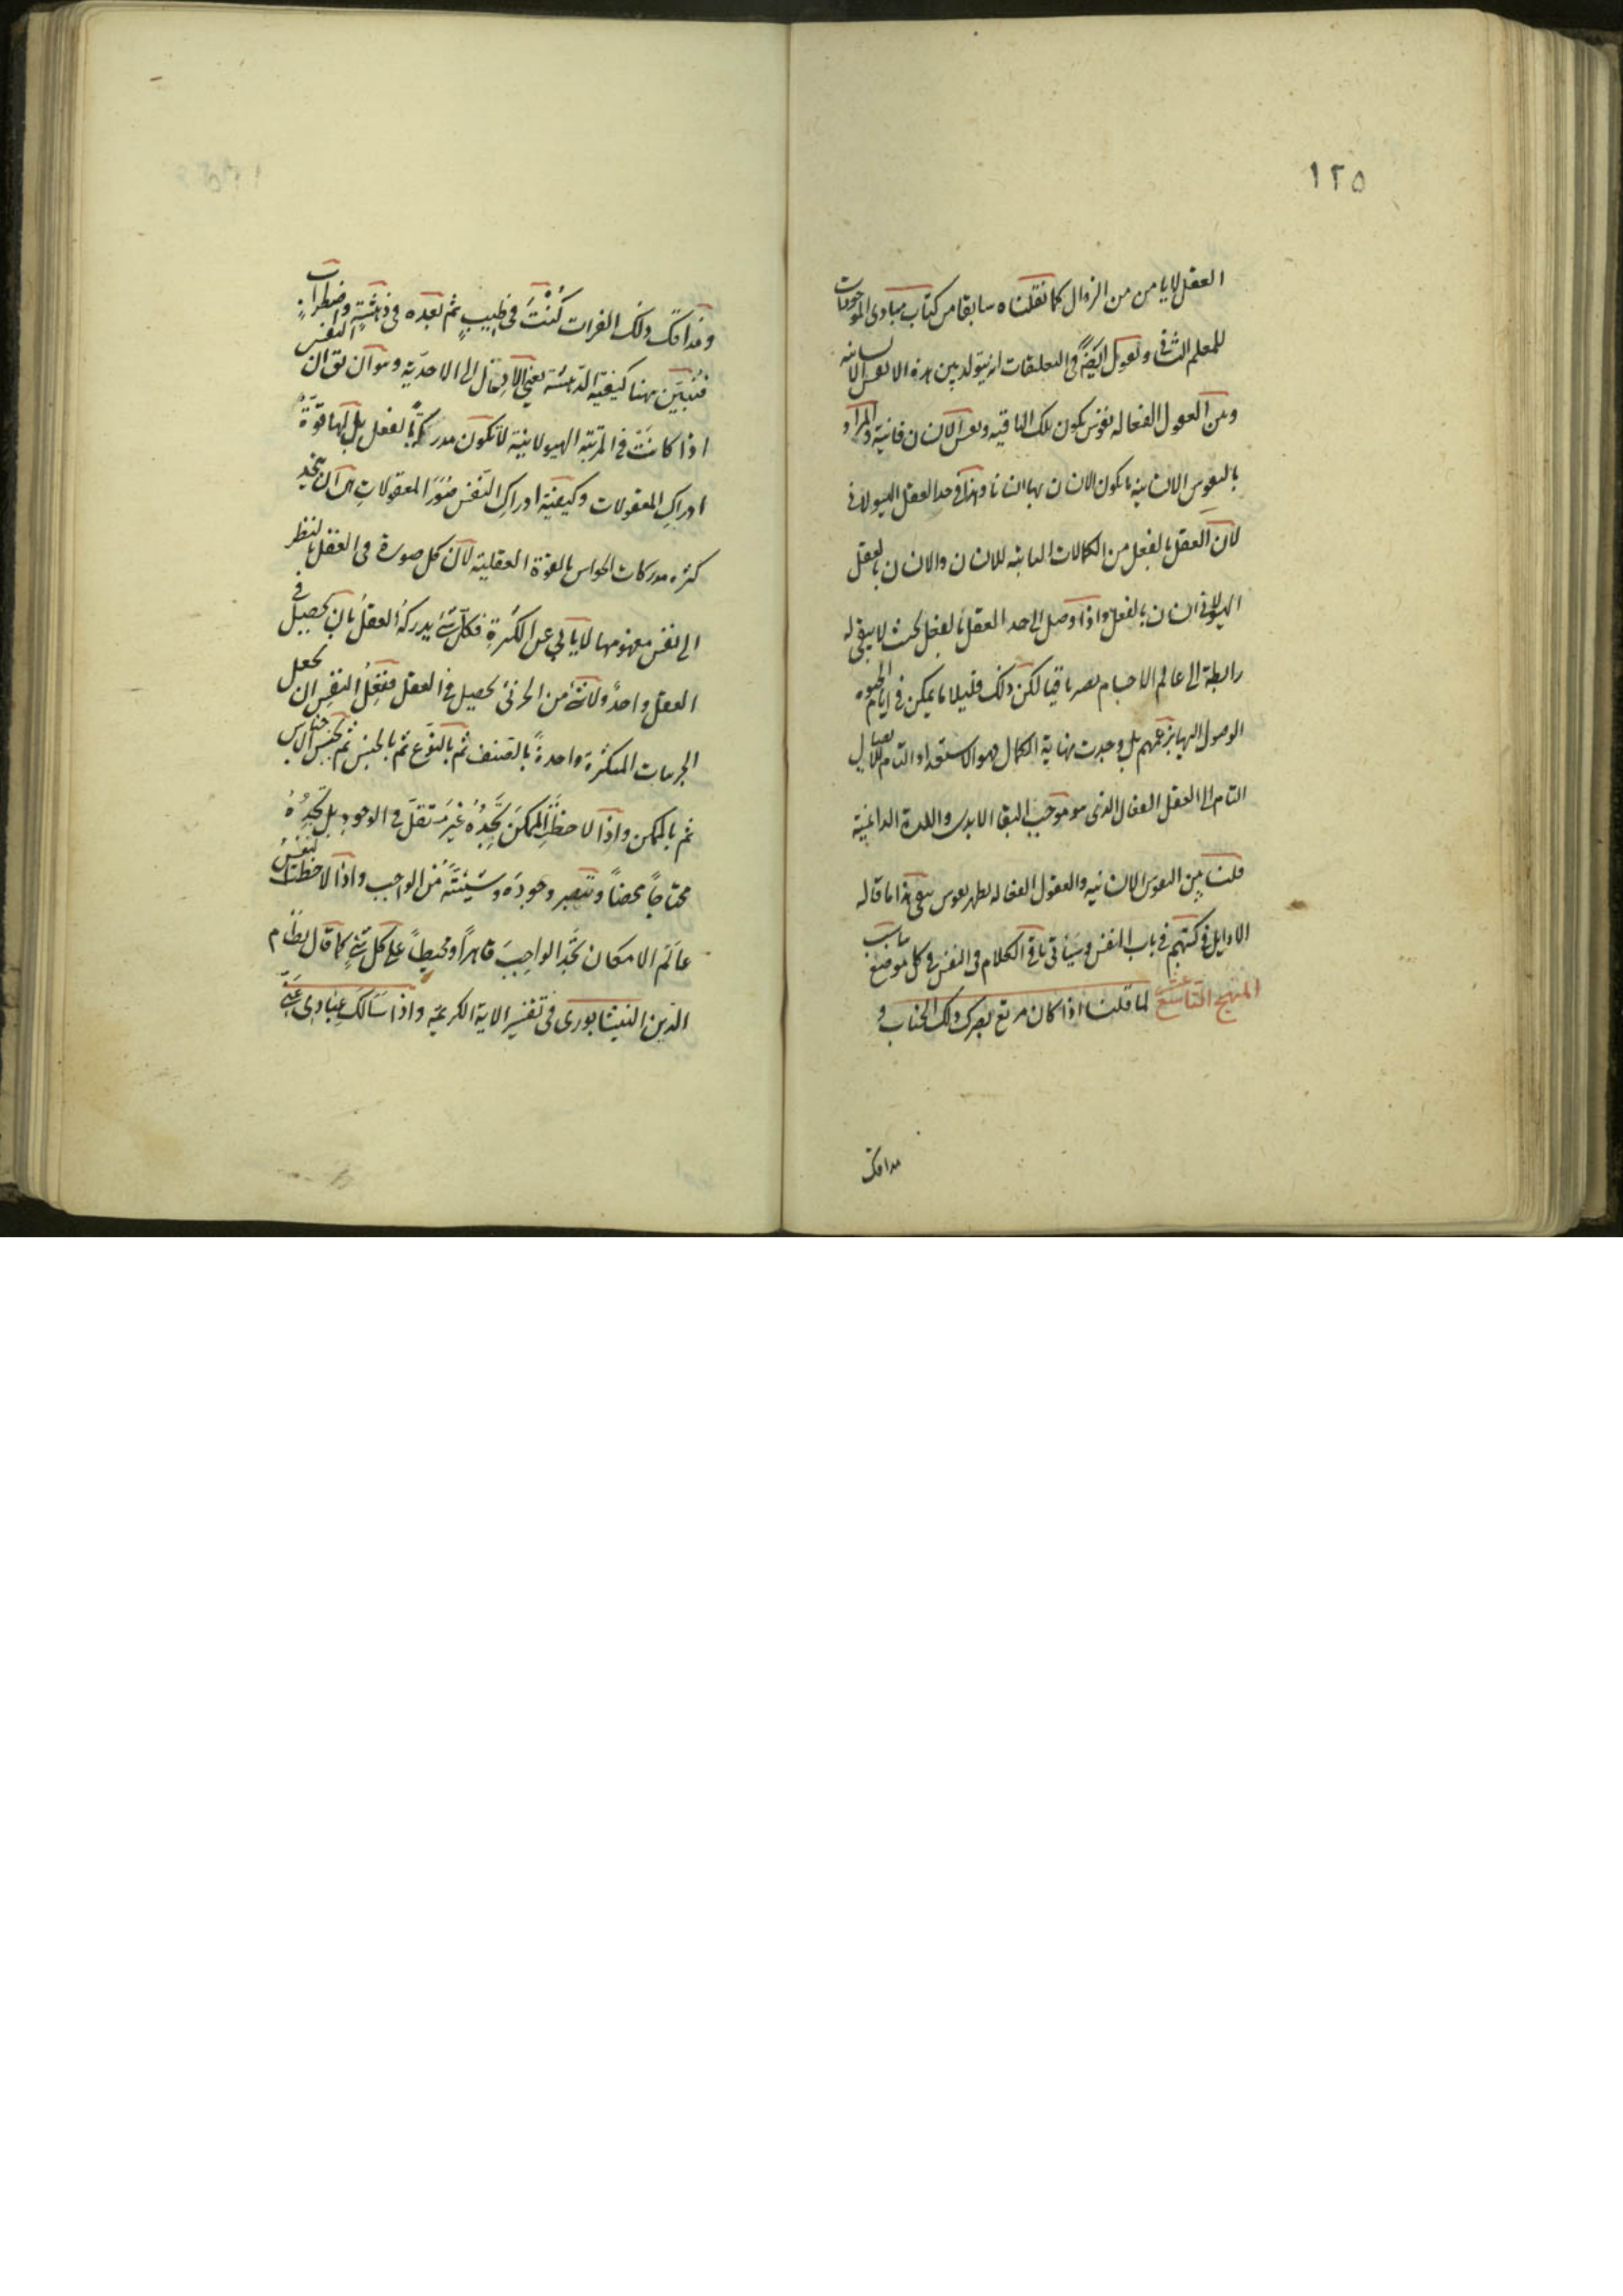 ١٢٥
العقل لا يامن من الزوال كما نقلناه سابقا من كتاب مبادى الموجودات
للمعلم الثانى ويقول ايضاً فى التعليقات انه يتولد بين هذه الانفس الانسانيه
ومن العقول الفعاله نفوس يكون تلك الباقيه ونفس الانسان فانية والمراد
بالنفوس الانسانيه ما يكون الانسان بها انسانا وهذا فى حد العقل الهيولانى
لان العقل بالفعل من الكمالات الثانيه للانسان والانسان بالعقل
الهيولانى انسان بالفعل واذا وصل الى حد العقل بالفعل بحيث لا يبقى له
رابطة الى عالم الاجسام يصير باقيا لكن ذلك قليلا ما يمكن فى ايام الحيوه
الوصول اليها بزعمهم بل وجدت نهاية الكمال وهو الاستعداد التام للاتصال
التام الى العقل الفعال الذى هو موجب البقا الابدى واللذة الدائمية
قلت من النفوس الانسانيه والعقول الفعاله يظهر نفوس يبقى هذا ما قاله
الاوايل فى كتبهم فى باب النفس وسياتى باقى الكلام فى النفس فى كل موضع يناسب
المنهج التاسع عشر لما قلت اذا كان مرتع بصرك ذلك الجناب و
مذاقك
ومذاقك ذلك الفرات كُنْتَ فى طيب ثم بعده فى دهشة واضطراب
فنبين هنا كيفية الدهشة يعنى الانتقال الى الاحديه وهو ان يقال ان النفس
اذا كانت فى المرتبة الهيولانية لا تكون مدركة بالفعل بل لها قوة
ادراك المعقولات وكيفية ادراك النفس صور المعقولات هى ان يتحد
كثرة مدركات الحواس بالقوة العقلية لان كل صورة فى العقل بالنظر
الى نفس مفهومها لا يابى عن الكثرة فكل شئ يدركه العقل بان يحصل فى
العقل واحد ولانه من الجزئى يحصل فى العقل ففعل النفس ان يجعل
الجزئيات المتكثرة واحدةً بالصنف ثم بالنوع ثم بالجنس ثم بجنس الاجناس
ثم بالممكن واذا لاحظت الممكن تجده غير مستقل فى الوجود بل تجده
محتاجاً محضاً وتبصر وجوده وشيئيته من الواجب واذا لاحظت النفس
عالم الامكان تجد الواجب قاهراً ومحيطاً على كل شئ كما قال نظام
الدين النيشابورى فى تفسير الاية الكريمة واذا سالك عبادى عنى